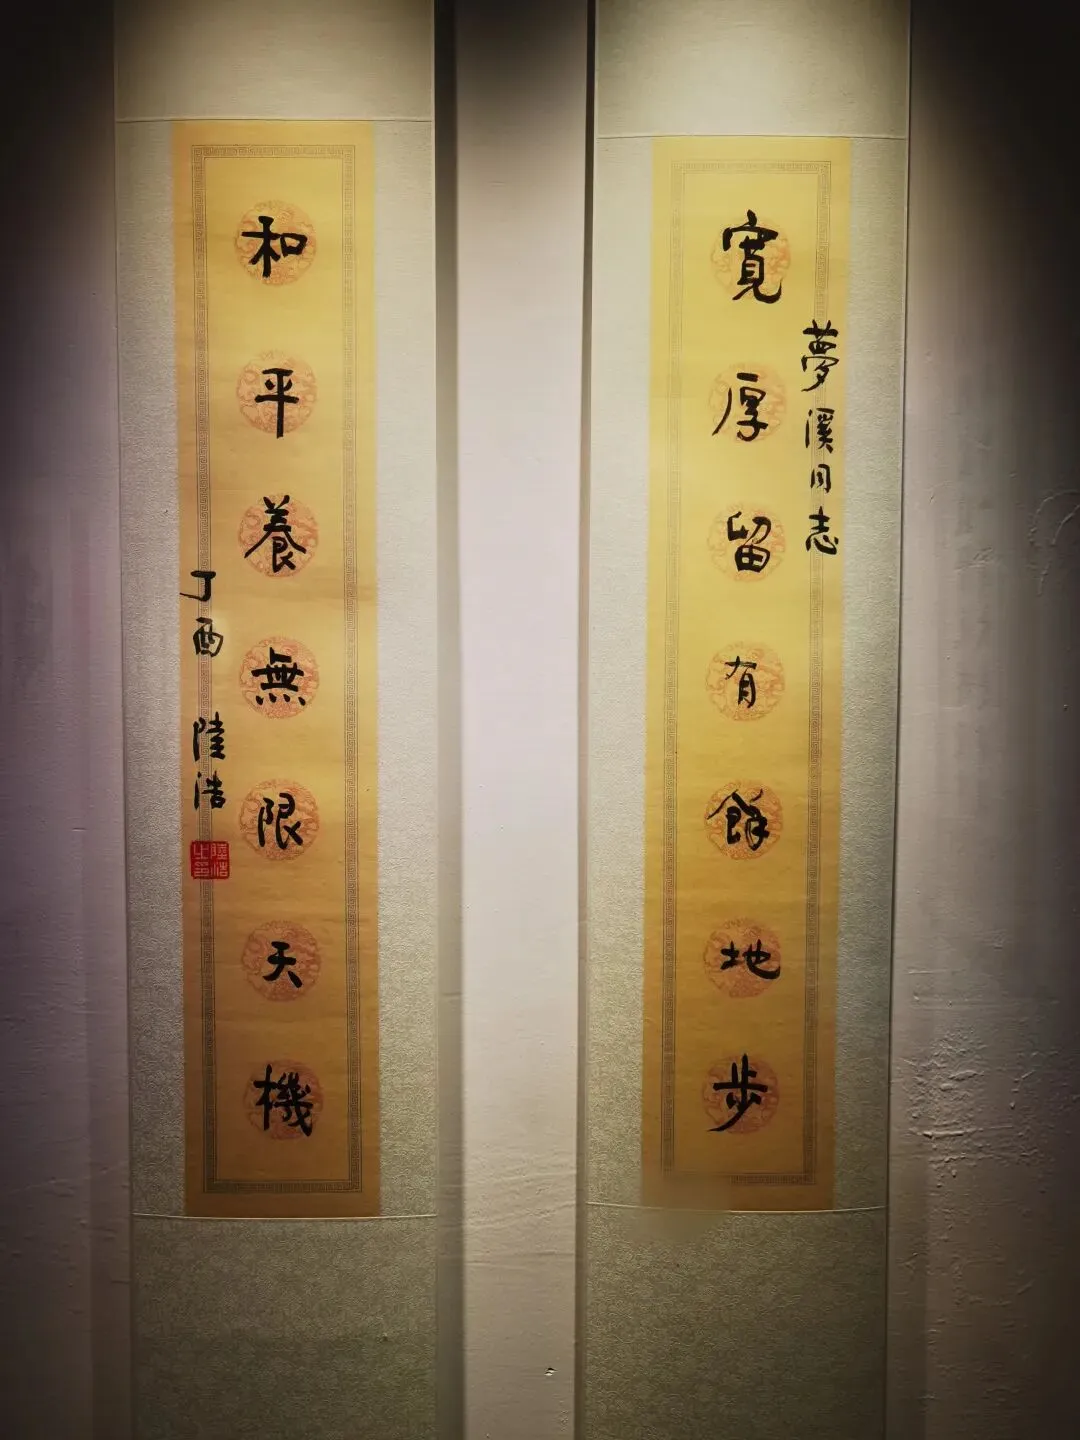 夢溪同志
寬厚留有餘地步
和平養無限天機
丁酉 陸浩
陸浩之印